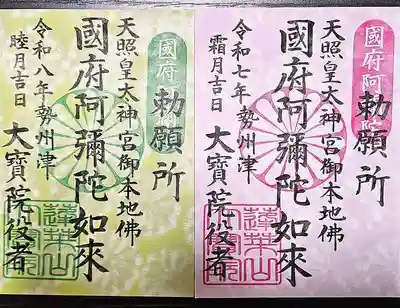 國府阿
勅願所
天照皇太神宮御本地佛
國府阿彌陀如來
令和七年勢州津
霜月吉日
大寶院役者
蓮華山
國府阿
勅願所
天照皇太神宮御本地佛
國府阿彌陀如來
令和八年勢州津
睦月吉日
大寶院役者
蓮華山